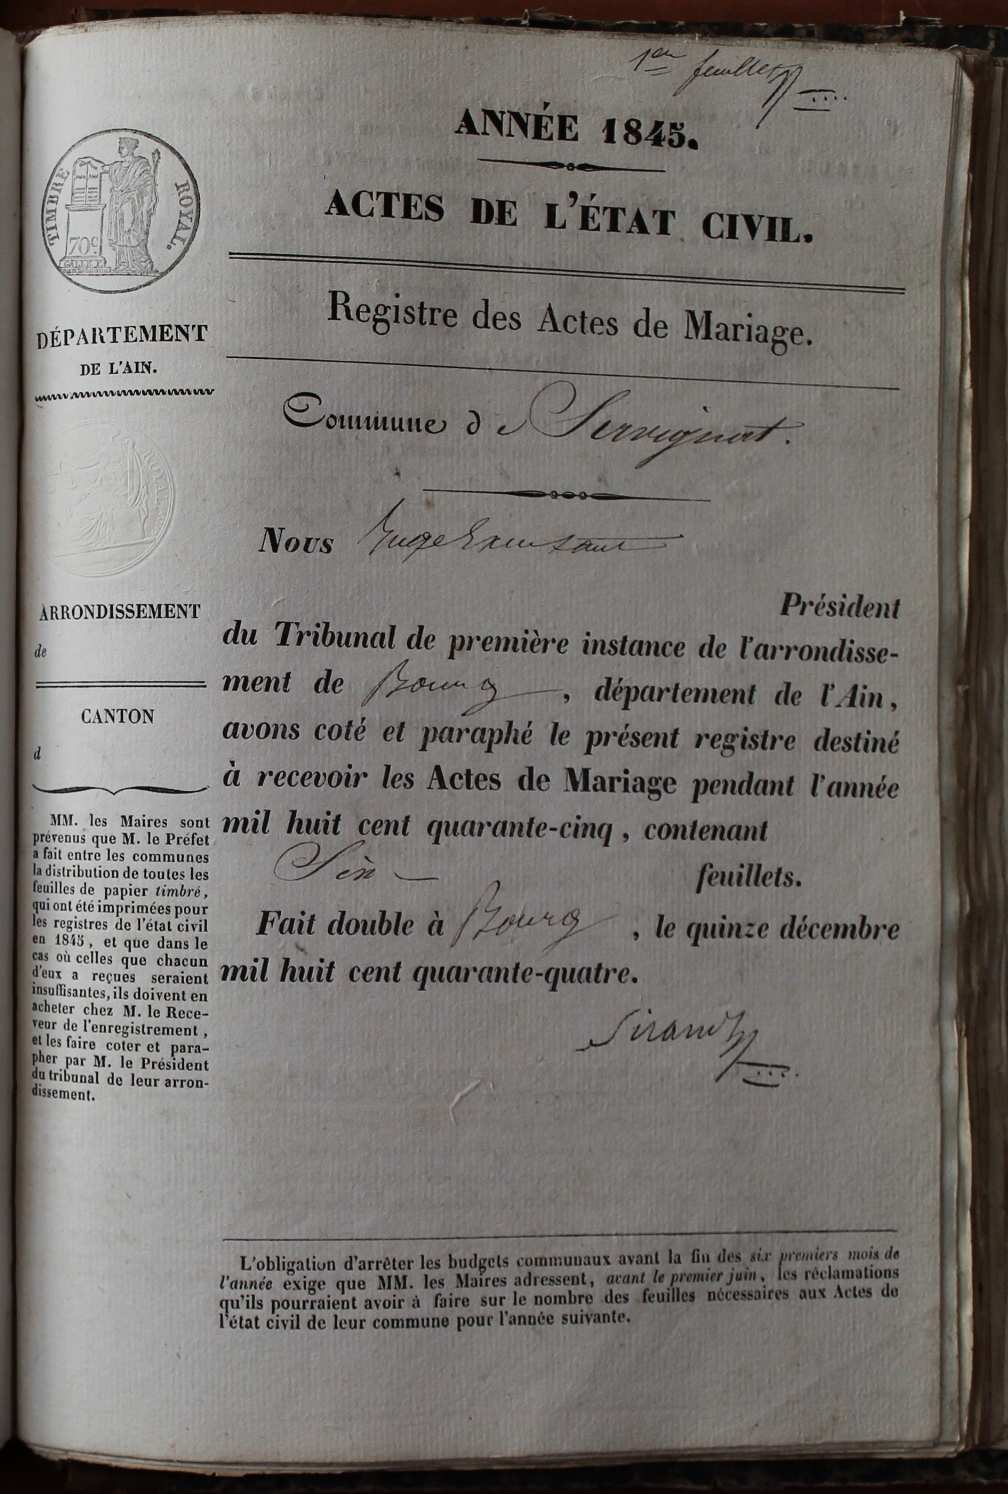 1er feuillet
ANNÉE 1845.
ACTES DE L'ÉTAT CIVIL.
TIMBRE ROYAL.
70c
DÉPARTEMENT
DE L'AIN.
Registre des Actes de Mariage.
Commune de Servignat.
Nous Juge
ARRONDISSEMENT
de
CANTON
d
Président
du Tribunal de première instance de l'arrondisse-
ment de Bourg, département de l'Ain,
avons coté et paraphé le présent registre destiné
à recevoir les Actes de Mariage pendant l'année
mil huit cent quarante-cinq, contenant
Six feuillets.
Fait double à Bourg, le quinze décembre
mil huit cent quarante-quatre.
Sirand
MM. les Maires sont
prévenus que M. le Préfet
a fait entre les communes
la distribution de toutes les
feuilles de papier timbré,
qui ont été imprimées pour
les registres de l'état civil
en 1845, et que dans le
cas où celles que chacun
d'eux a reçues seraient
insuffisantes, ils doivent en
acheter chez M. le Rece-
veur de l'enregistrement,
et les faire coter et para-
pher par M. le Président
du tribunal de leur arron-
dissement.
L'obligation d'arrêter les budgets communaux avant la fin des six premiers mois de
l'année exige que MM. les Maires adressent, avant le premier juin, les réclamations
qu'ils pourraient avoir à faire sur le nombre des feuilles nécessaires aux Actes de
l'état civil de leur commune pour l'année suivante.